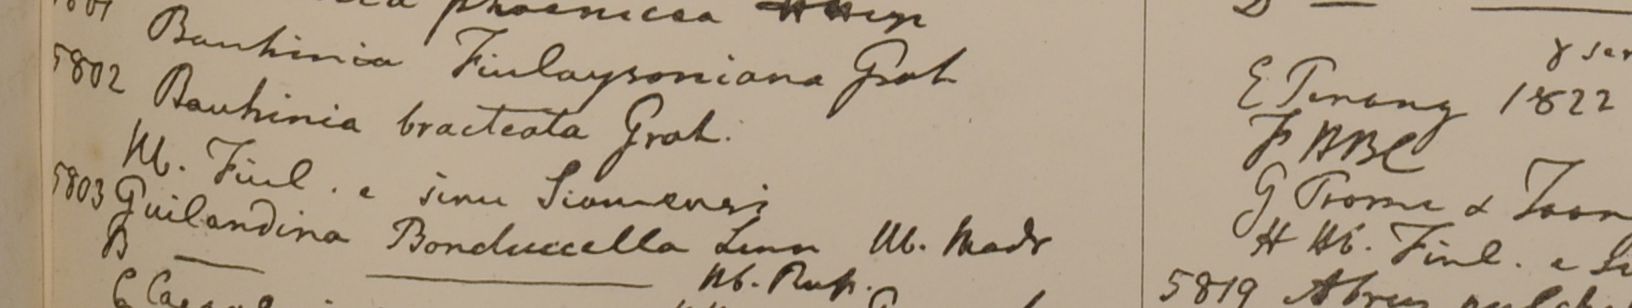 5801
phoenicea
Bauhinia Finlaysoniana Grah
5802 Bauhinia bracteata Grah.
Hb. Finl. e sinu Siamensi
5803 Guilandina Bonduccella Linn Hb. Madr
B — —— Hb. Rox.
C
D — ——
E Penang 1822
F HBC
G Prome &
H Hb. Finl. e
5819 Abrus